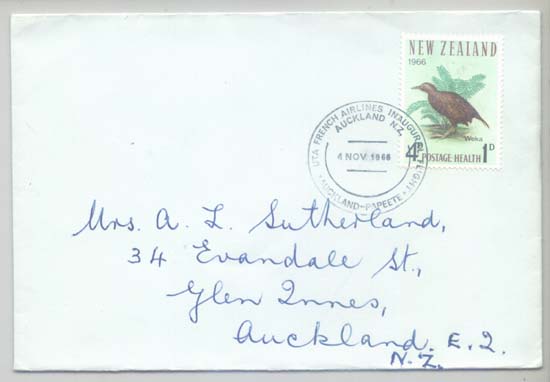 NEW ZEALAND
1966
Weka
4D POSTAGE-HEALTH 1D
UTA FRENCH AIRLINES INAUGURAL FLIGHT
AUCKLAND N.Z.
4 NOV 1966
AUCKLAND-PAPEETE
Mrs. A. L. Sutherland,
34 Evandale St.,
Glen Innes,
Auckland. E. 2.
N.Z.